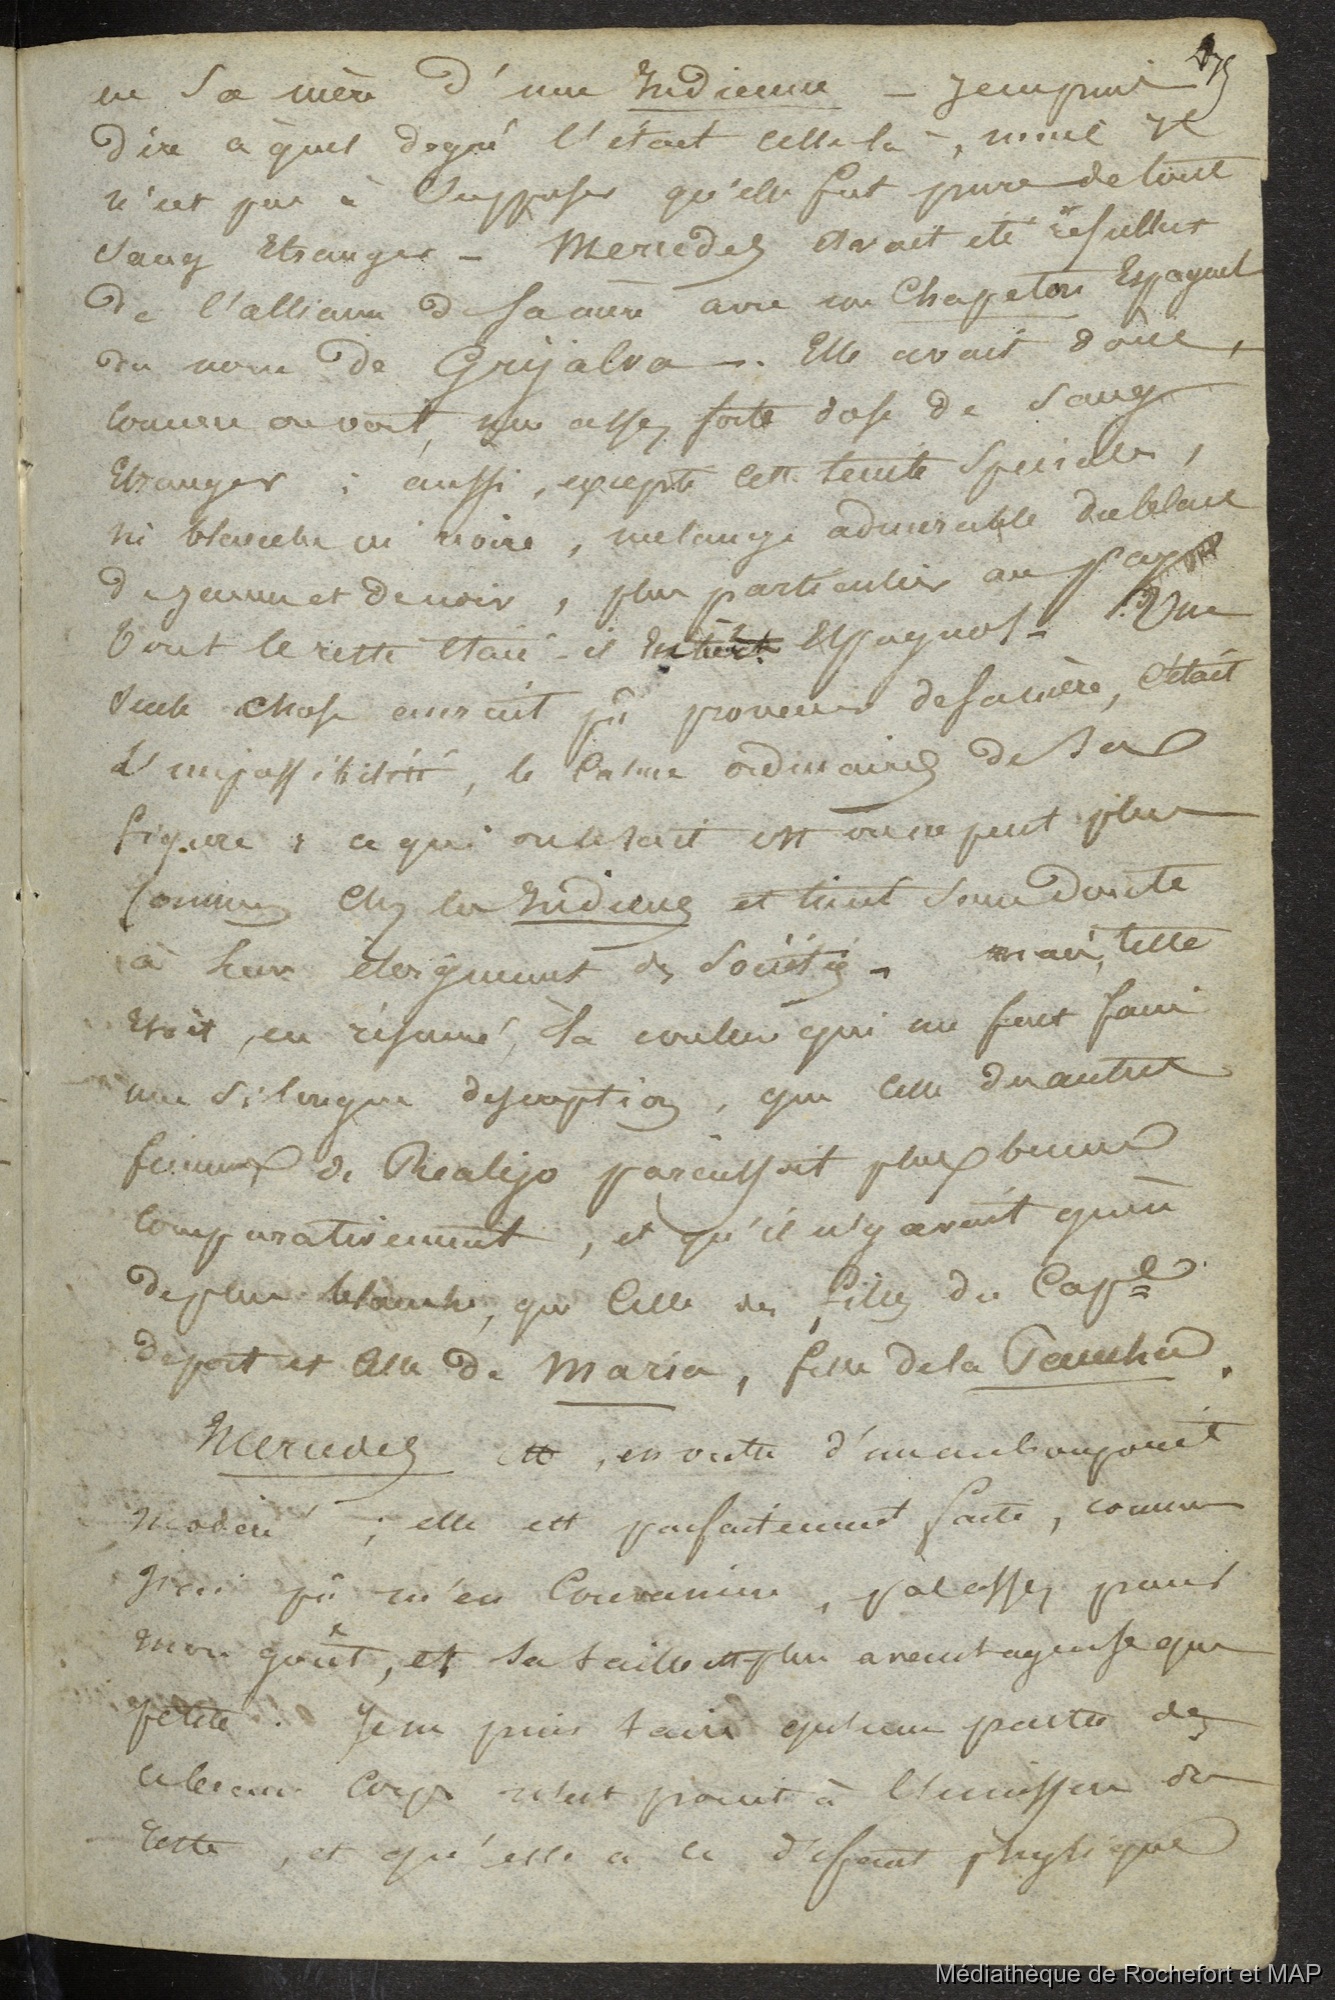 275
en sa mère d'une Indienne _ je ne puis
dire à quel degré l'était celle là, mais il
n'est pas à supposer qu'elle fut pure de tout
sang Etranger _ Mercedes avait été résulter
de l'alliance de sa mère avec un Chapeton Espagnol
du nom de Grijalva _. Elle avait donc,
comme on voit, une assez forte dose de sang
Etranger ; aussi, excepté cette teinte speciale,
ni blanche ni noire, mélange admirable du blanc
de jaune et de noir, plus particulier au pays
tout le reste était-il Espagnol _ Une
seule chose aurait pû provenir de sa mère, c'était
l'impassibilité, le calme ordinaire de sa
figure : ce qui on le sait est on ne peut plus
commun chez les Indiens et tient sans doute
à leur éloignement des Sociétés _ mais, telle
était, en résumé, sa couleur qui me fait faire
une si longue description, que celle des autres
femmes de Realejo paraissait plus brune
comparativement, et qu'il n'y avait qu'un
de plus blanche, que celle des filles du Cape
de port et celle de Maria, fille de la Pancha.
Mercedes est, en outre d'un embonpoint
modéré ; elle est parfaitement faite, comme
j'ai pû m'en convaincre, pas assez pour
mon goût, et sa taille est plus avantageuse que
petite. Je ne puis taire qu'une partie de
ce beau corps n'est point à l'unisson du
reste, et qu'elle a ce défaut physique
Médiathèque de Rochefort et MAP